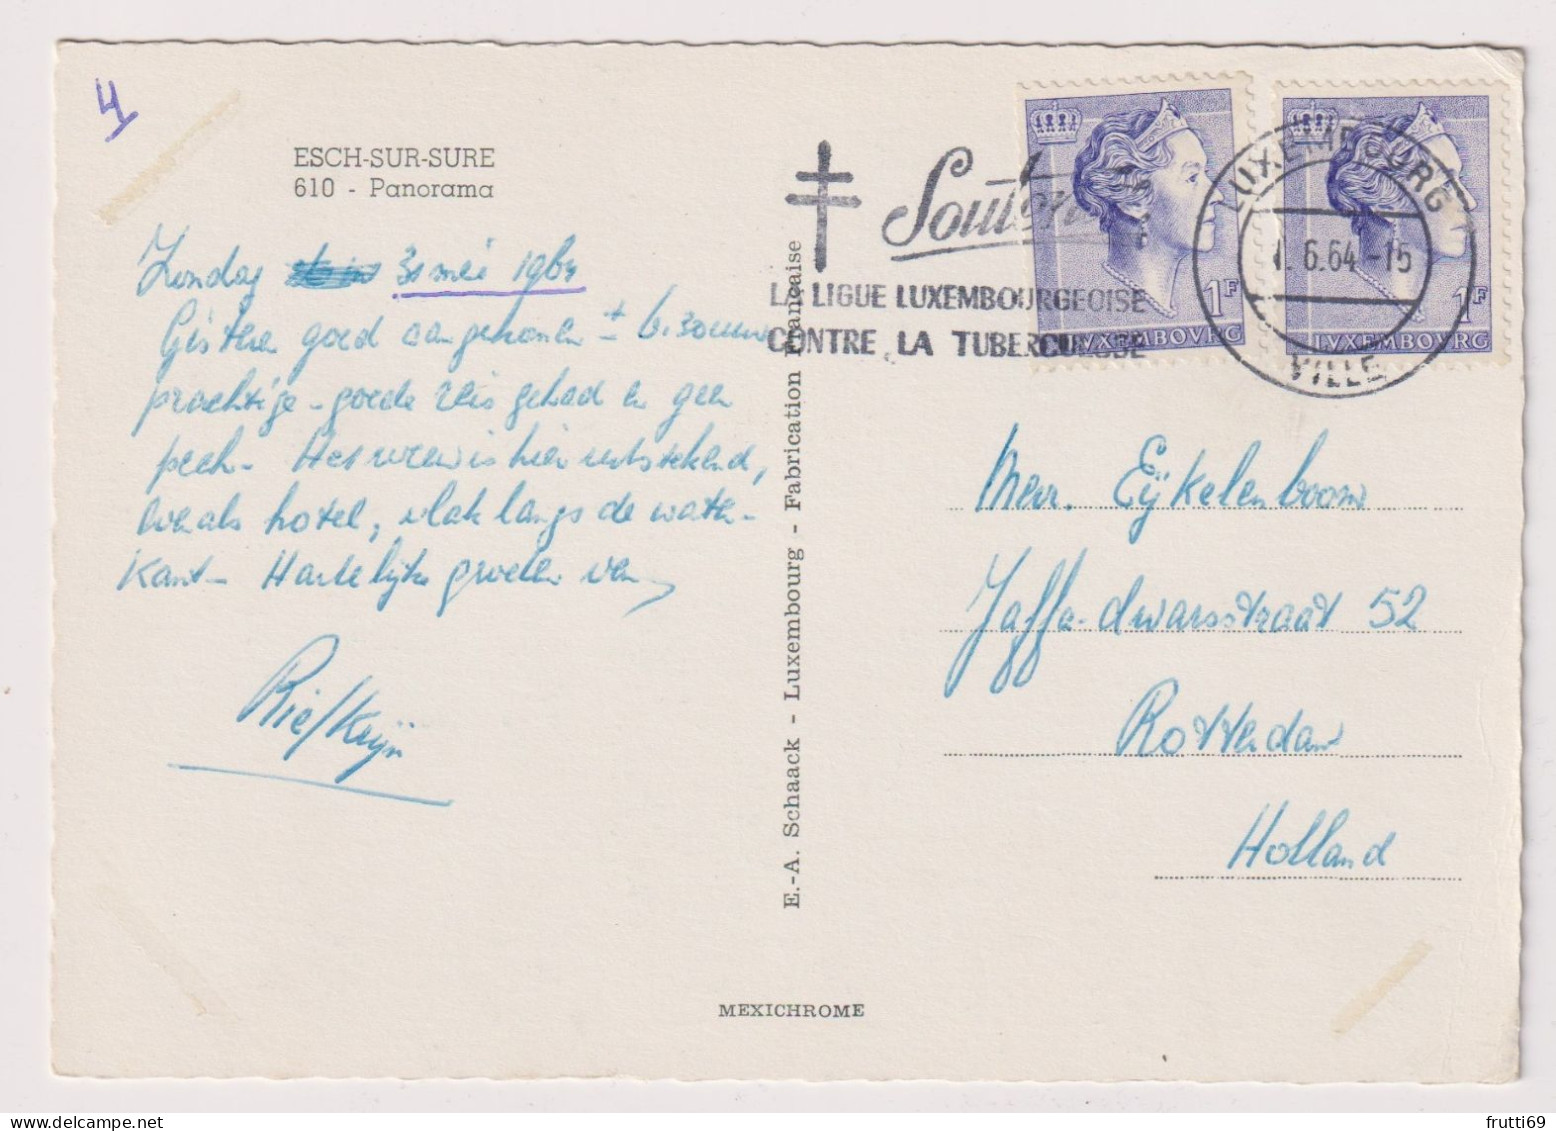 4
ESCH-SUR-SURE
610 - Panorama
Zondag 31 mei 1964
Gisteren goed aangekomen ± 6.30 uur
prachtige - goede reis gehad en geen
pech - Het weer is hier uitstekend,
evenals hotel, vlak langs de water-
kant - Hartelijke groeten van,
Rie/Krijn
E.-A. Schaack - Luxembourg - Fabrication Française
MEXICHROME
Soutenez
LA LIGUE LUXEMBOURGEOISE
CONTRE LA TUBERCULOSE
1F
LVXEMBOVRG
1F
LVXEMBOVRG
LUXEMBOURG
1.6.64-15
VILLE
Mevr. Eijkelenboom
Jaffa-dwarsstraat 52
Rotterdam
Holland
frutti69